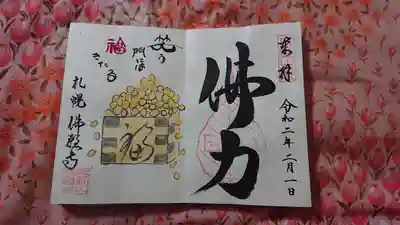 奉拝 令和二年二月一日
佛力
笑う
門には
福
きたる
福
札幌 佛願寺